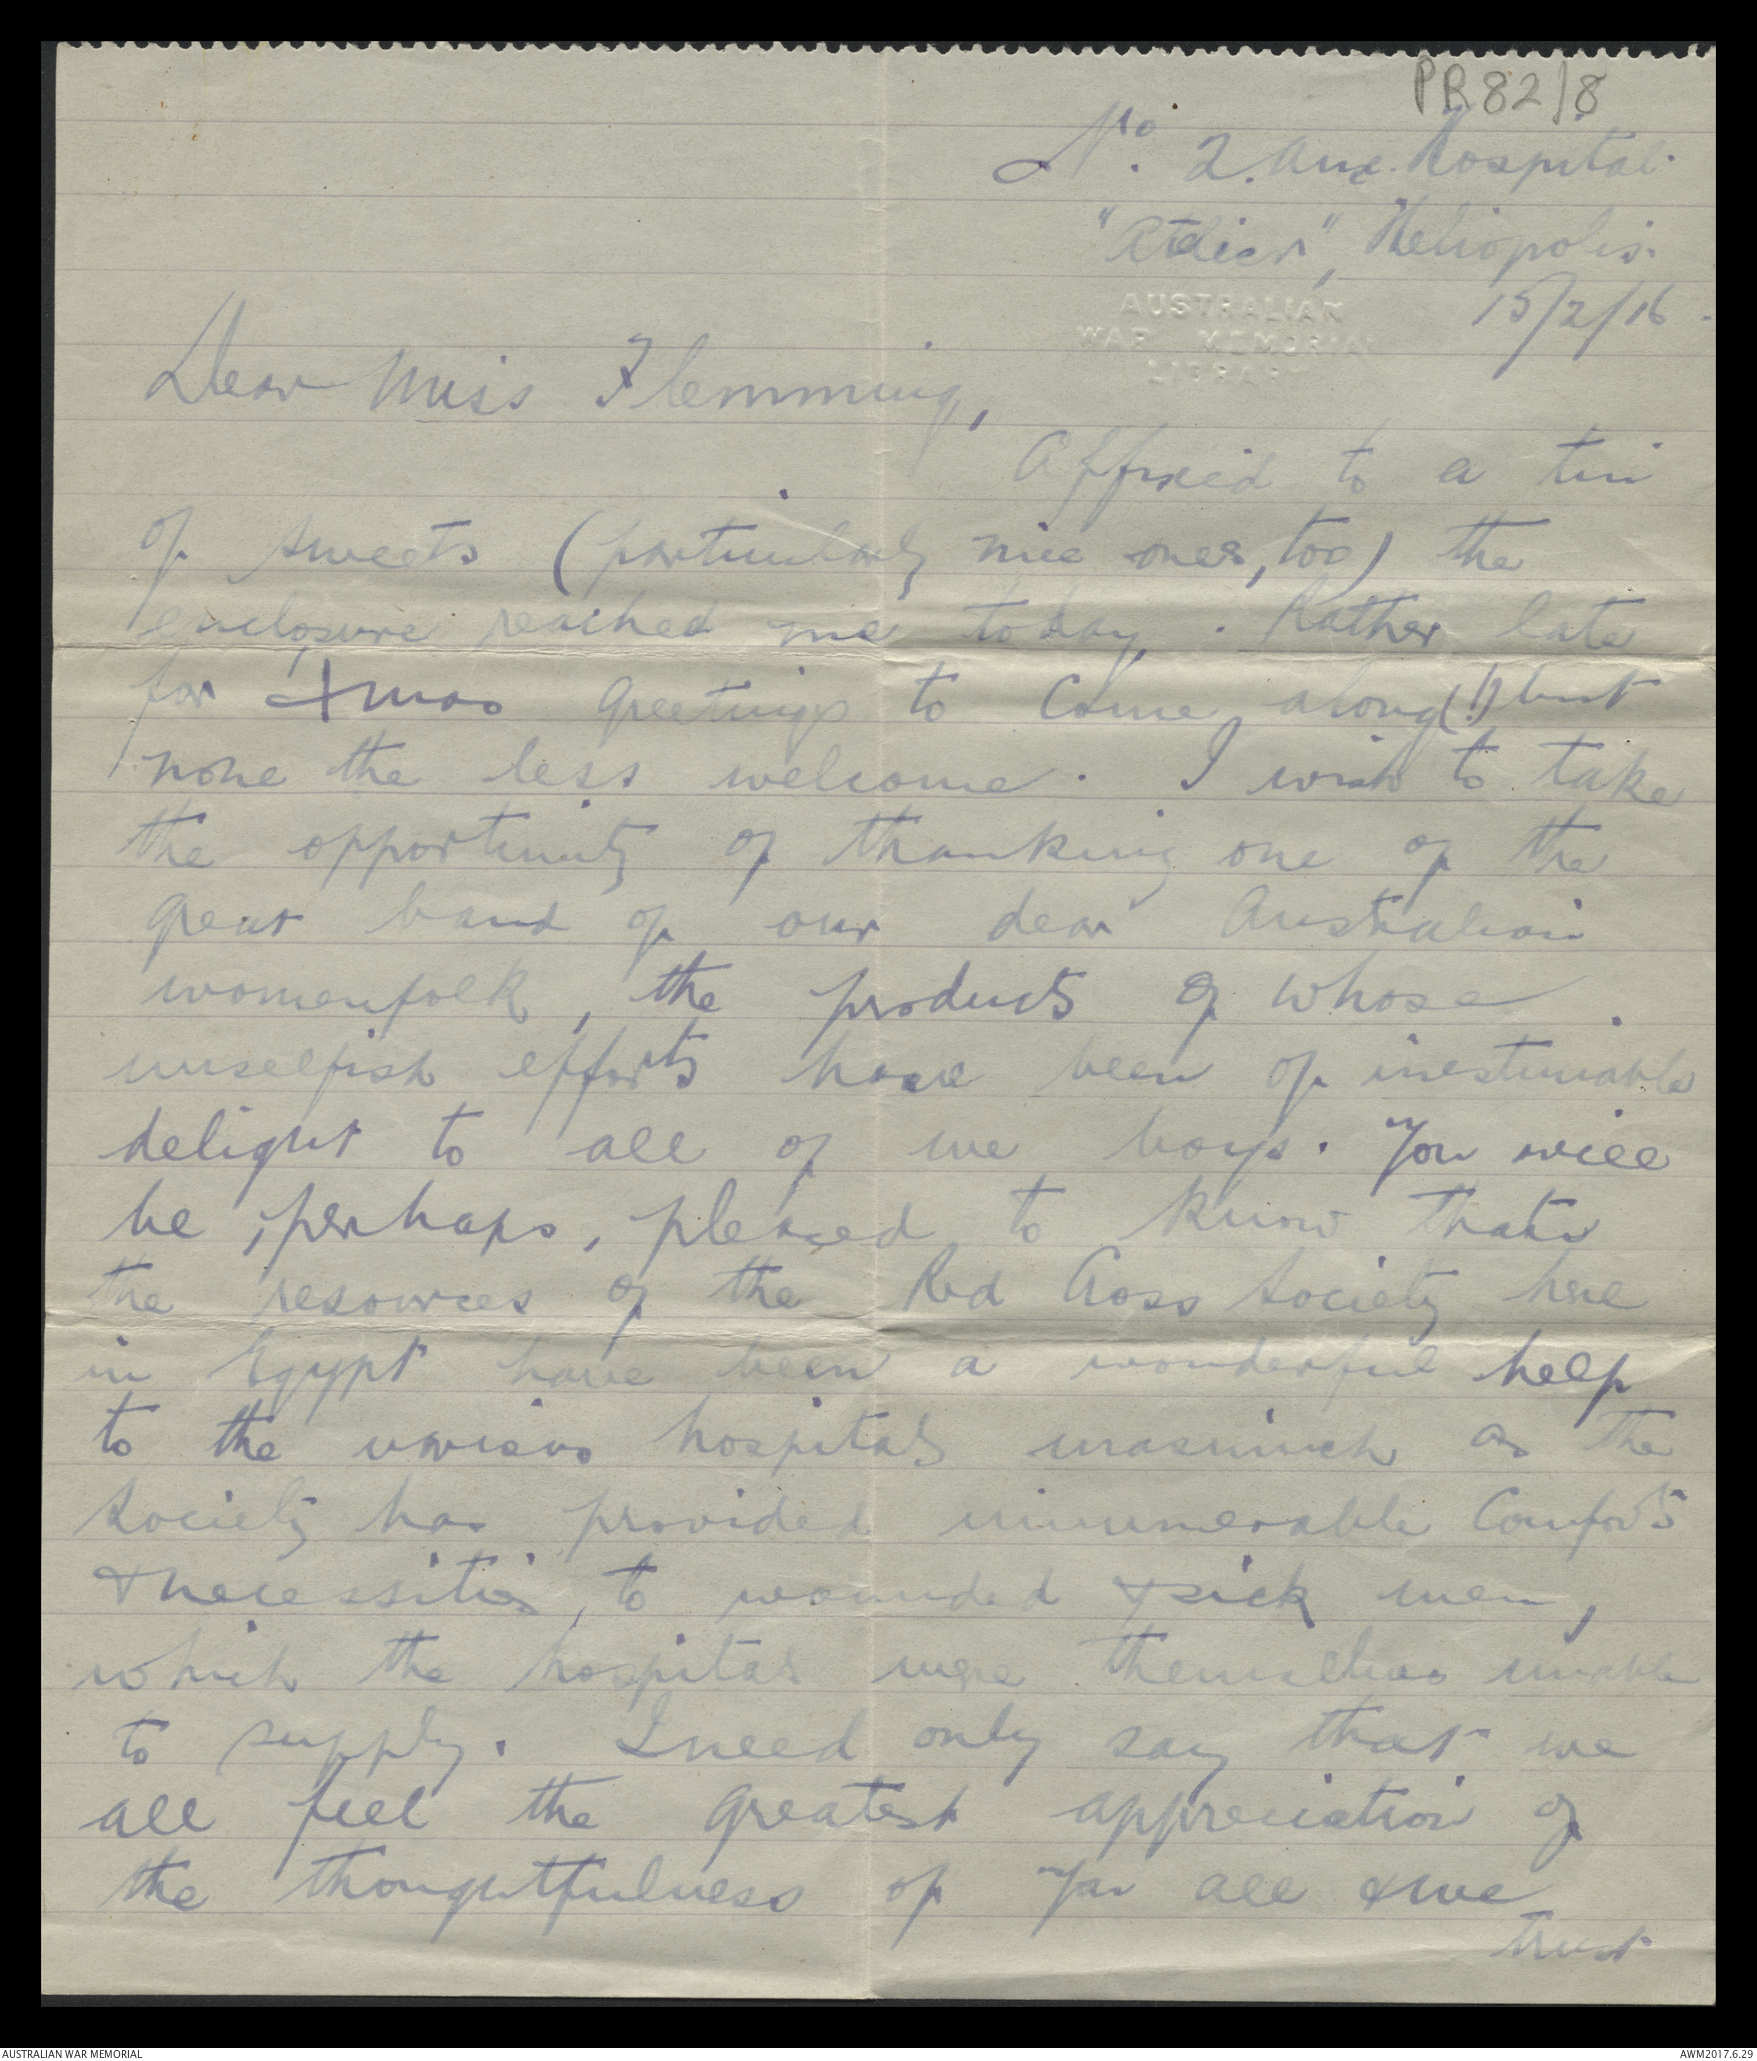 PR82/8
No. 2. Aux. Hospital.
"Atelier", Heliopolis.
15/2/16.
AUSTRALIAN
WAR MEMORIAL
LIBRARY
Dear Miss Flemming,
Affixed to a tin
of sweets (particularly nice ones, too) the
enclosure reached me today. Rather late
for Xmas greetings to come along (!) but
none the less welcome. I wish to take
the opportunity of thanking one of the
great band of our dear Australian
womenfolk, the products of whose
unselfish efforts have been of inestimable
delight to all of we boys. You will
be, perhaps, pleased to know that
the resources of the Red Cross Society here
in Egypt have been a wonderful help
to the various hospitals inasmuch as the
Society has provided innumerable comforts
& necessities, to wounded & sick men,
which the hospitals were themselves unable
to supply. I need only say that we
all feel the greatest appreciation of
the thoughtfulness of you all & we
trust
AUSTRALIAN WAR MEMORIAL
AWM2017.6.29